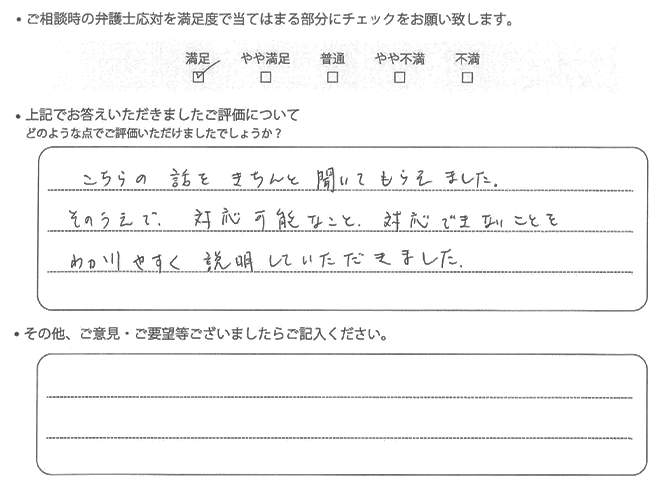 • ご相談時の弁護士応対を満足度で当てはまる部分にチェックをお願い致します。
満足 やや満足 普通 やや不満 不満
☑ □ □ □ □
• 上記でお答えいただきましたご評価について
どのような点でご評価いただけましたでしょうか？
こちらの話をきちんと聞いてもらえました。
そのうえで、対応可能なこと、対応できないことを
わかりやすく説明していただきました。
• その他、ご意見・ご要望等ございましたらご記入ください。